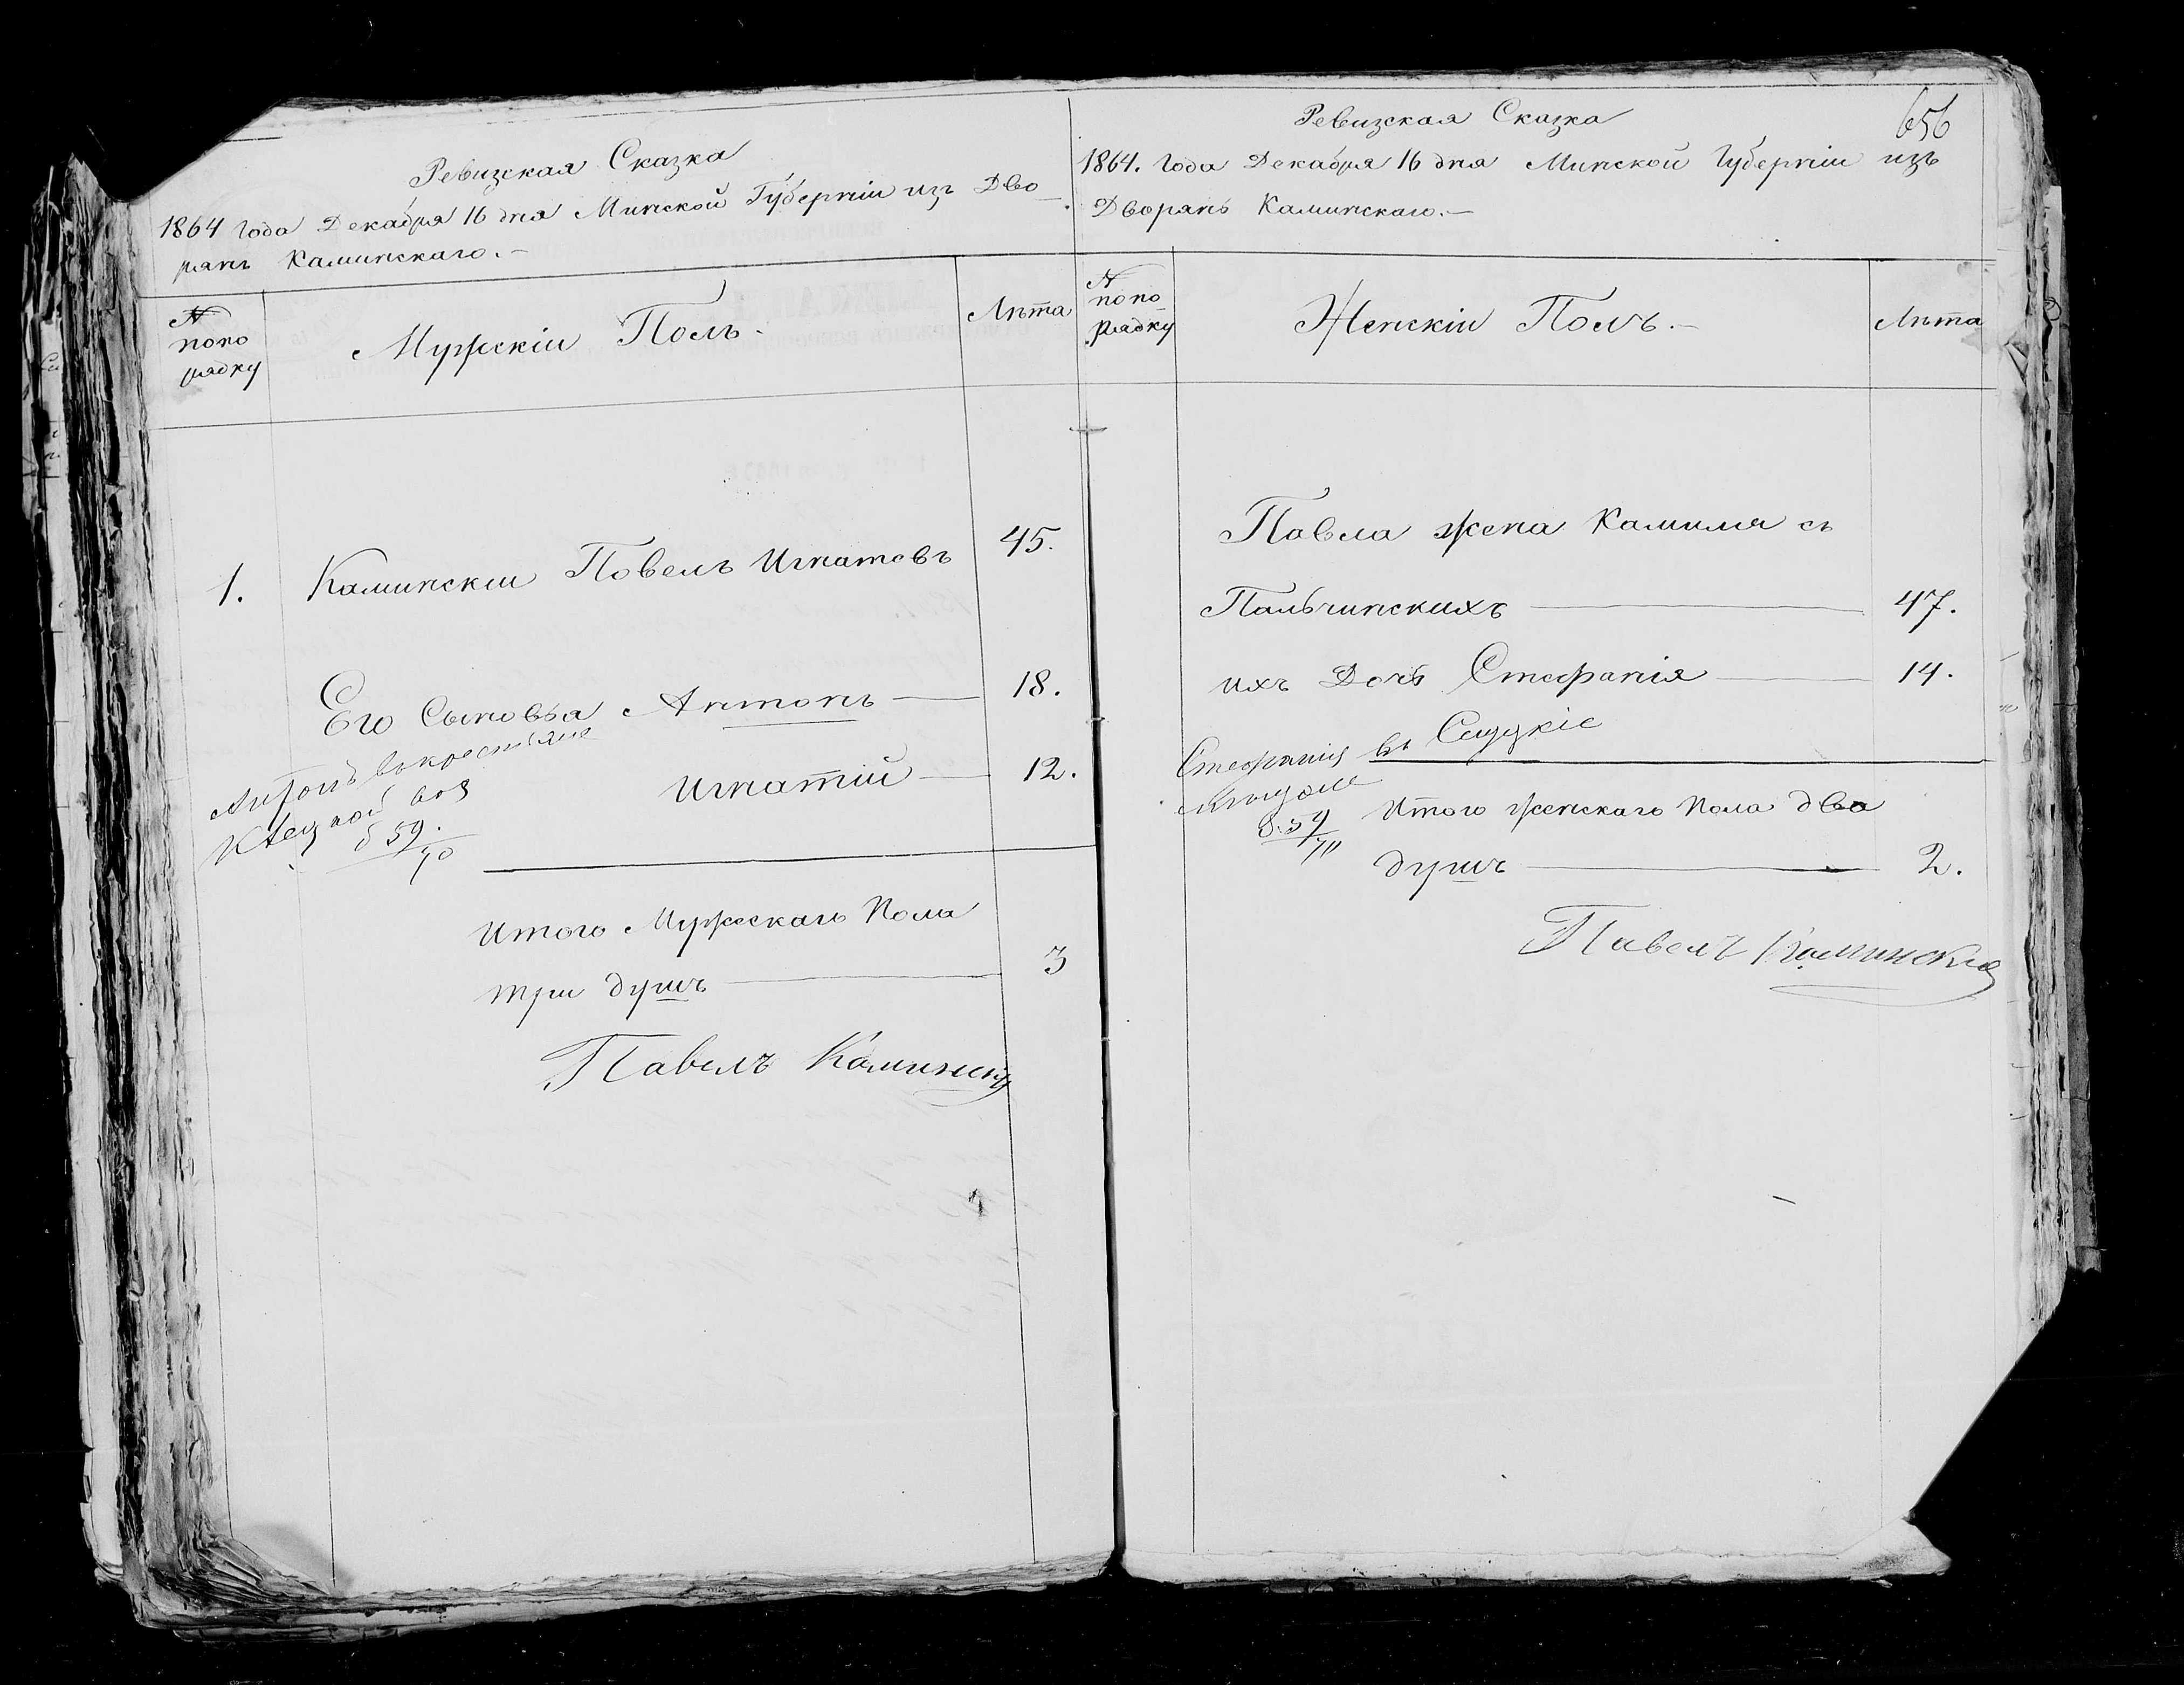 Ревизская Сказка
1864 года Декабря 16 дня Минской Губерніи изъ Дво
рянъ Каминскаго.-
N
попо
рядку
Мужскіи Полъ.
Лѣта
1. Каминскіи Повелъ Игнатовъ 45.
Его Сыновья Антонъ 18.
Игнатій 12.
Антонъ въ крестьяне
Клецкой вол
б 59/70
Итого Мужескаго Пола
три душъ 3
Павелъ Каминскій
656
Ревизская Сказка
1864. Года Декабря 16 дня Минской Губерніи изъ
Дворянъ Каминскаго.-
N
попо
рядку
Женскіи Полъ.-
Лѣта
Павла жена Камиля съ
Пальчинскихъ 47.
ихъ Дочь Стефанія 14.
Стефанія въ Слуцкіе
59
Итого женскаго Пола два
душъ 2.
Павелъ Каминскій